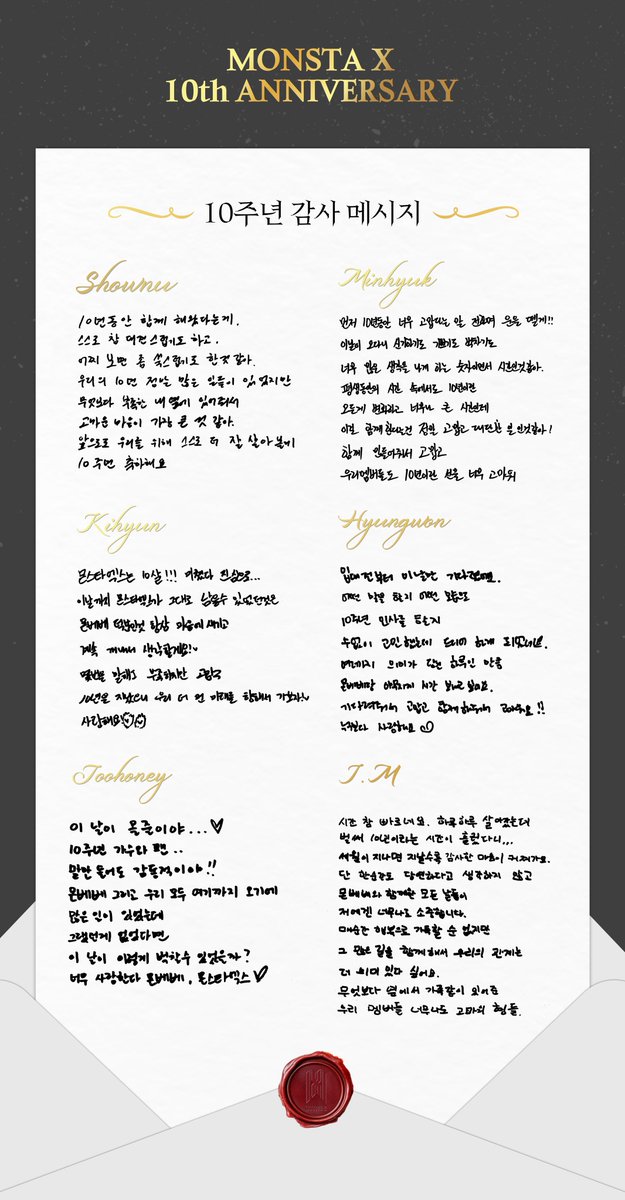 MONSTA X
10th ANNIVERSARY
10주년 감사 메시지
Shownu
10년동안 함께 해왔다는게,
스스로 참 대견스럽기도 하고,
어찌 보면 좀 쑥스럽기도 한것 같아.
우리의 10년 정말 많은 일들이 있었지만
무엇보다 부족한 내 옆에 있어줘서
고마운 마음이 가장 큰 것 같아.
앞으로도 우리를 위해 스스로 더 잘 살아볼게
10주년 축하해요
Minhyuk
먼저 10년동안 너무 고맙다는 말 전하며 운을 뗄게!!
이날이 오다니 신기하기도 기쁘기도 벅차기도
너무 많은 생각을 나게 하는 숫자이면서 시간인것같아.
평생동안의 시간 속에서도 10년이란
오롯이 변화하고 너무나 큰 시간인데
이걸 함께한다는건 정말 고맙고 대단한 일인것같아!
함께 만들어줘서 고맙고
우리멤버들도 10년이란 선물 너무 고마워
Kihyun
몬스타엑스는 10살!!! 미쳤다 진심으로...
이날까지 몬스타엑스가 그대로 남을수 있었던것은
몬베베 덕분인것 항상 마음에 새기고
계속 꺼내서 생각할게요!
몇번을 말해도 부족하지만 고맙구
10년을 지났으니 우리 더 먼 미래를 향해서 가보자!
사랑해요
Hyungwon
입대전부터 이날만 기다렸어요.
어떤 날을 할지 어떤 모습으로
10주년 인사를 드릴지
수없이 고민했는데 드디어 함께 되었네요.
여러가지 의미가 담긴 하루인 만큼
몬베베랑 행복하게 시간 보내고 싶어요.
기다려줘서 고맙고 함께해주셔서 고마워요!!
누구보다 사랑해요
Joohoney
이 날이 온순이야...♡
10주년 가수와 팬..
말만 들어도 감동적이야!!
몬베베 그리고 우리 모두 여기까지 오기에
많은 일이 있었는데
그랬던게 없었다면
이 날이 이렇게 벅찰수 있었을까?
너무 사랑한다 몬베베, 몬스타엑스♡
I.M
시간 참 빠르네요. 하루하루 살아갔는데
벌써 10년이라는 시간이 흘렀다니,,,
세월이 지나면 지날수록 감사한 마음이 커져가요.
단 한순간도 당연하다고 생각하지 않고
몬베베와 함께한 모든 날들이
저에겐 너무나도 소중합니다.
매순간 행복으로 가득할 순 없지만
그 모든 길을 함께해서 우리의 관계는
더 의미 있다 싶어요.
무엇보다 옆에서 가족같이 있어준
우리 멤버들 너무나도 고마워 형들.